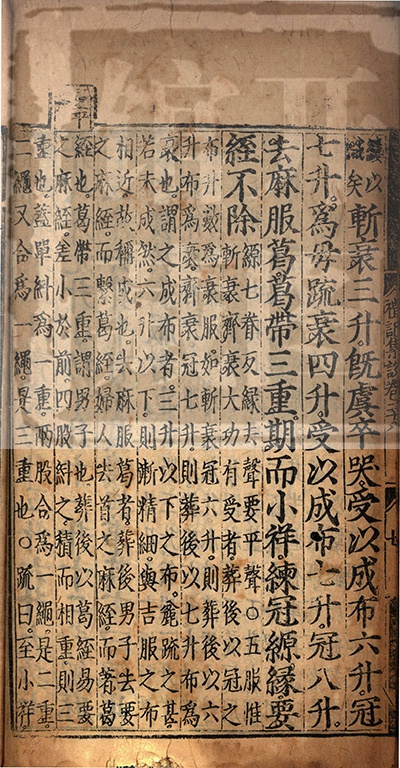 斬衰三升旣虞卒哭受以成布六升冠
七升爲母䟽衰四升受以成布七升冠八升
去麻服葛葛帶三重期而小祥練冠縓緣要
絰不除
縓七眷反緣去聲要平聲○五服惟
斬衰齊衰大功有受者葬後以冠之
布升數爲衰服如斬衰冠六升則葬後以六
升布爲衰齊衰冠七升則葬後以七升布爲
衰也謂之成布者三升以下之布麄疏之甚
若未成然六升以下則漸精細與吉服之布
相近故稱成也去麻服葛者葬後男子去要
之麻絰而繫葛絰婦人去首之麻絰而著葛
絰也葛帶三重謂男子也葬後以葛絰易要
之麻絰差小於前四股紏之積而相重則三
重也蓋單紏爲一重兩股合爲一繩是二重
二繩又合爲一繩是三重也○疏曰至小祥